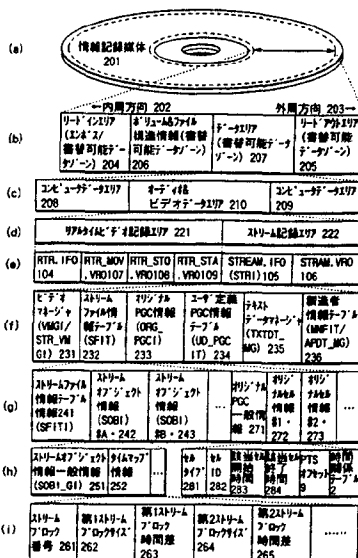 (a)
情報記録媒体
201
←内周方向 202
外周方向 203→
(b)
リードインエリア
(エンボス/
書替可能デー
タゾーン) 204
ボリューム&ファイル
構造情報(書替
可能データゾーン)
206
データエリア
(書替可能データ
ゾーン) 207
リードアウトエリア
(書替可能デー
タゾーン)
205
(c)
コンピュータデータエリア
208
オーディオ&
ビデオデータエリア 210
コンピュータデータエリア
209
(d)
リアルタイムビデオ記録エリア 221
ストリーム記録エリア 222
(e)
RTR.IFO
104
RTR_MOV
.VRO107
RTR_STO
.VRO108
RTR_STA
.VRO109
STREAM.IFO
(STRI)105
STRAM.VRO
106
(f)
ビデオ
マネージャ
(VMGI/
STR_VM
GI) 231
ストリーム
ファイル情
報テーブル
(SFIT)
232
オリジナル
PGC情報
(ORG_
PGCI)
233
ユーザ定義
PGC情報
テーブル
(UD_PGC
IT) 234
テキスト
データマネージャ
(TXTDT_
MG) 235
製造者
情報テーブル
(MNFIT/
APDT_MG)
236
(g)
ストリームファイル
情報テーブル
情報241
(SFITI)
ストリーム
オブジェクト
情報
(SOBI)
#A・242
ストリーム
オブジェクト
情報
(SOBI)
#B・243
…
オリジナル
PGC
一般情
報 271
オリジ
ナルセル
情報
#1・
272
オリジ
ナルセル
情報
#2・
273
…
(h)
ストリームオブジェクト
情報一般情報
(SOBI_GI) 251
タイムマップ
情報
252
…
セル
タイプ
281
セル
ID
282
該当セル
開始
時間
283
該当セル
終了
時間
284
PTS
オフセット
9
時間
関係テ
ーブル
2
(i)
ストリーム
ブロック
番号 261
第1ストリーム
ブロックサイズ
262
第1ストリーム
ブロック
時間差
263
第2ストリーム
ブロックサイズ
264
第2ストリーム
ブロック
時間差
265
…